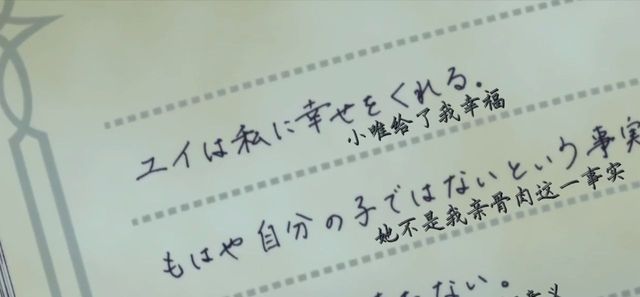 ユイは私に幸せをくれる。
小唯给了我幸福
もはや自分の子ではないという事実
她不是我亲骨肉这一事实
ない。
意义